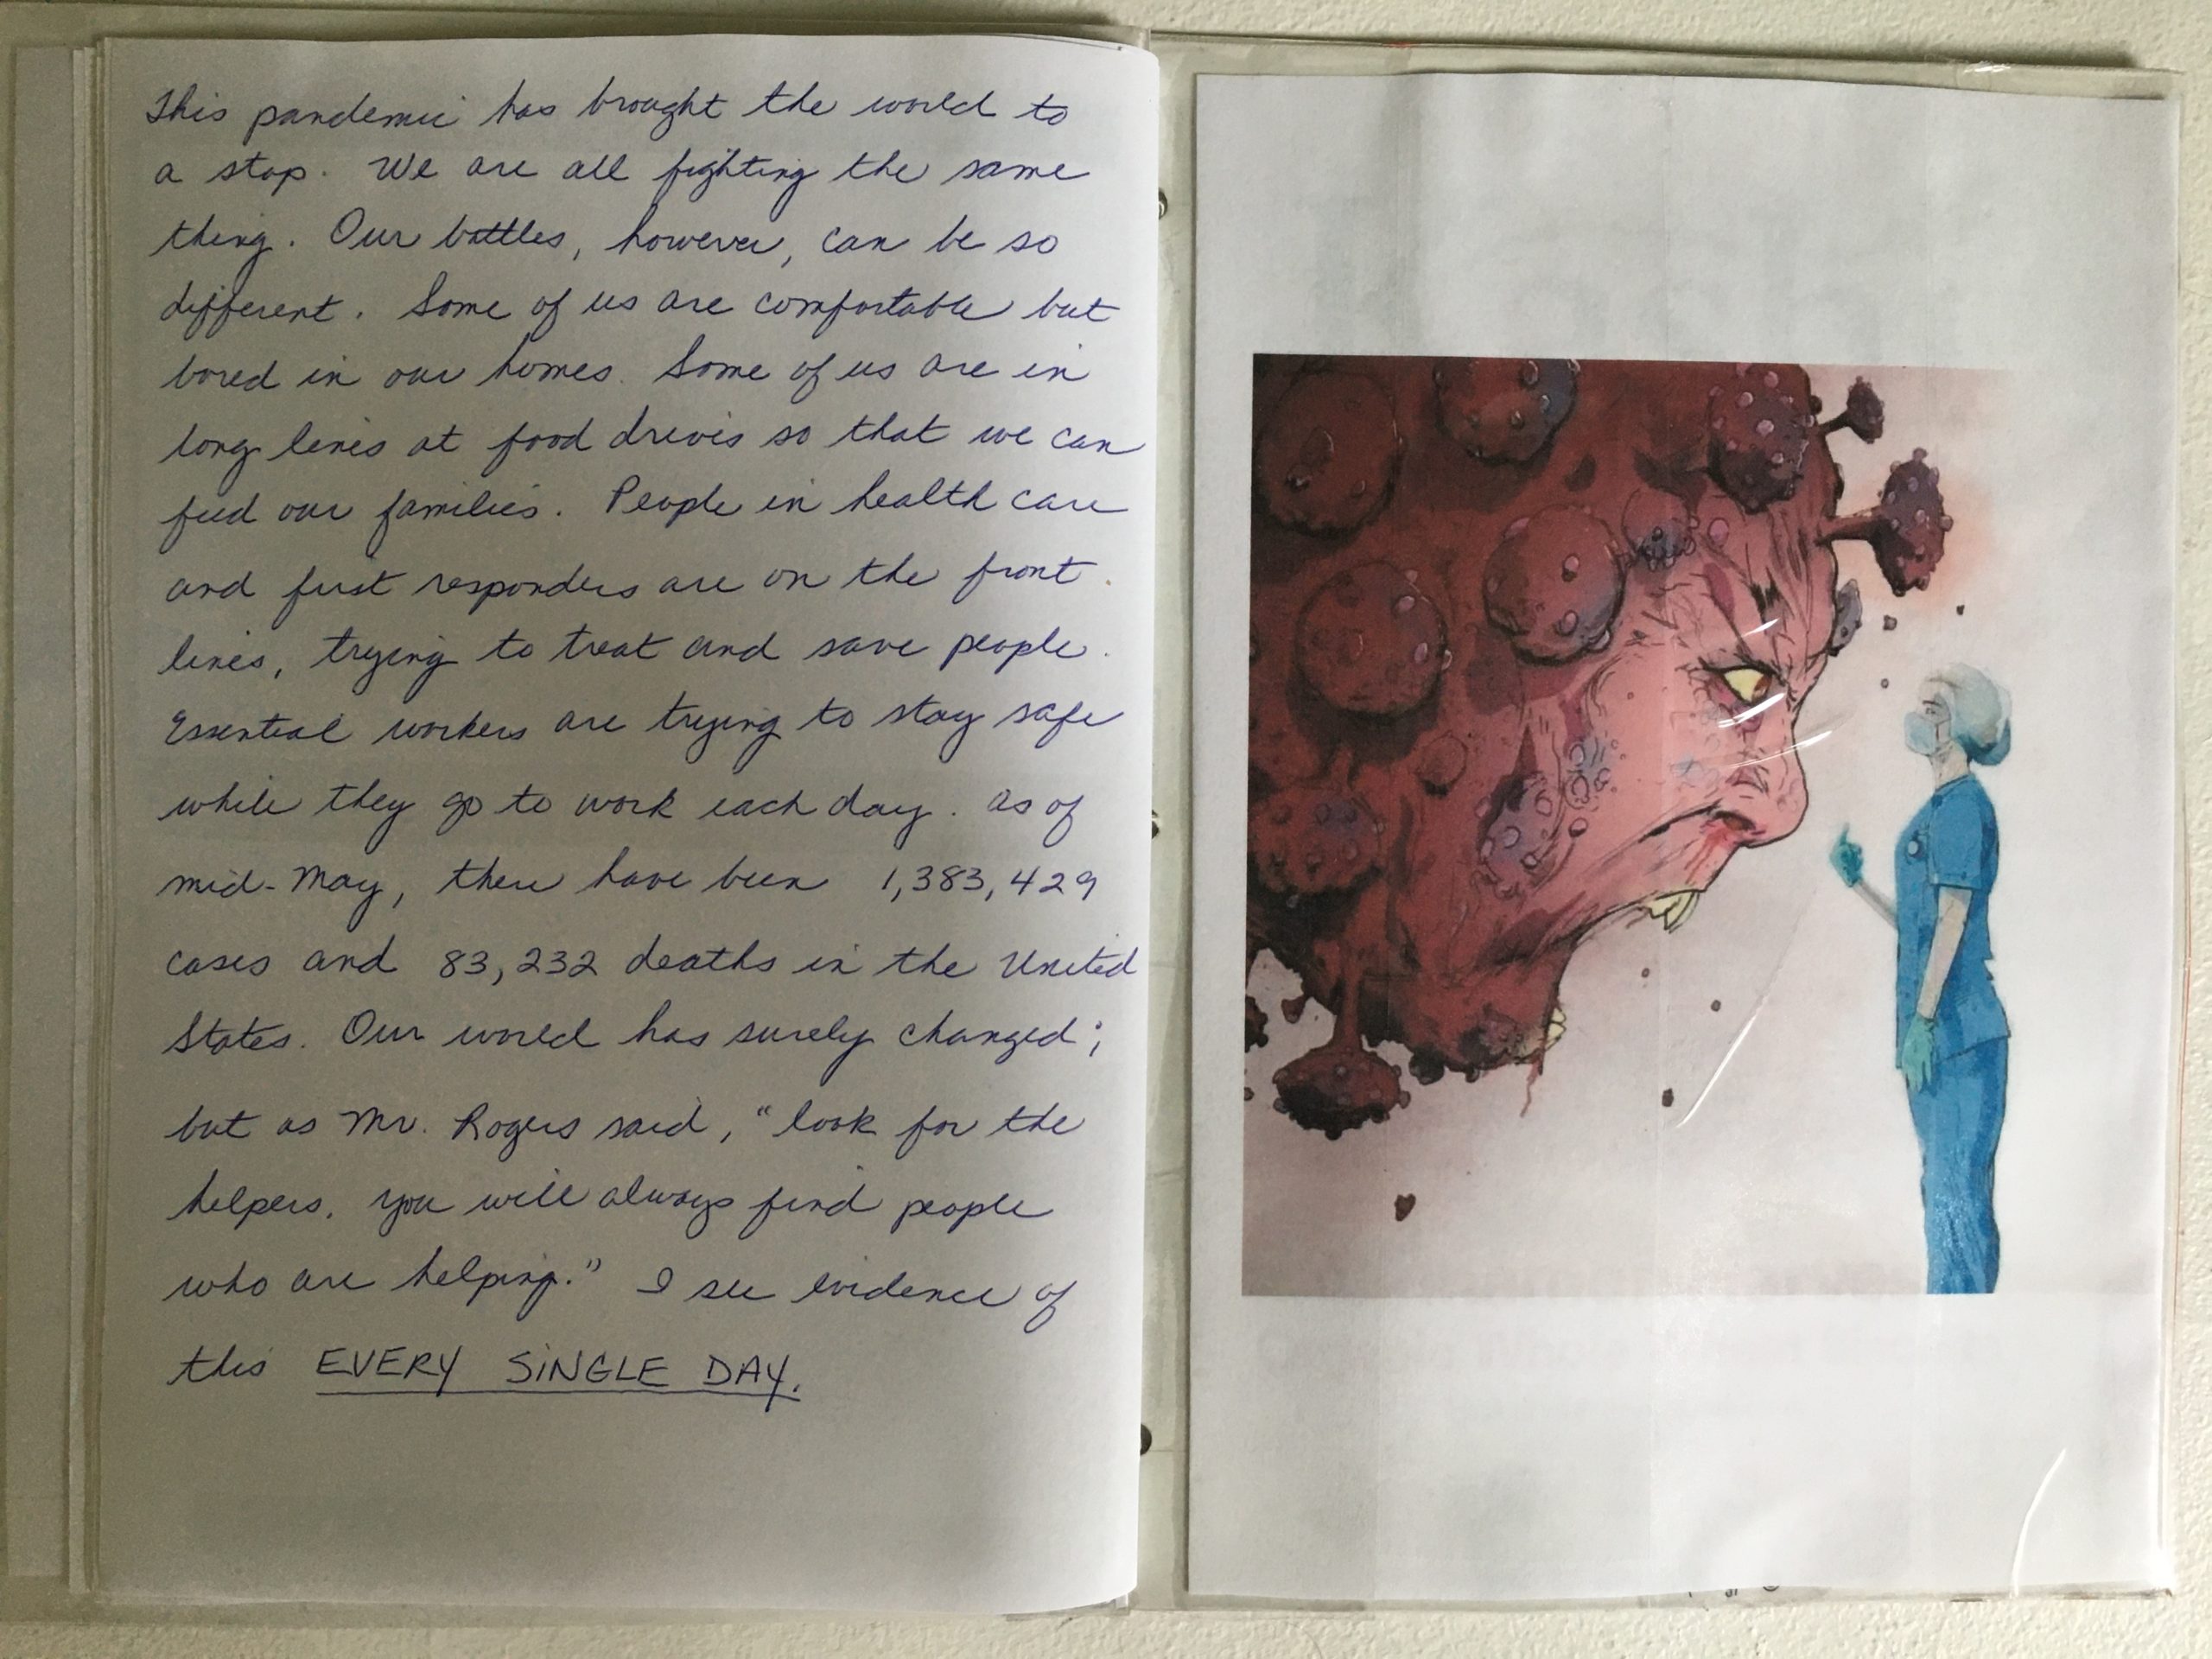 This pandemic has brought the world to
a stop. We are all fighting the same
thing. Our battles, however, can be so
different. Some of us are comfortable but
bored in our homes. Some of us are in
long lines at food drives so that we can
feed our families. People in health care
and first responders are on the front
lines, trying to treat and save people.
Essential workers are trying to stay safe
while they go to work each day. As of
mid-May, there have been 1,383,429
cases and 83,232 deaths in the United
States. Our world has surely changed;
but as Mr. Rogers said, "look for the
helpers. You will always find people
who are helping." I see evidence of
this EVERY SiNGLE DAY.